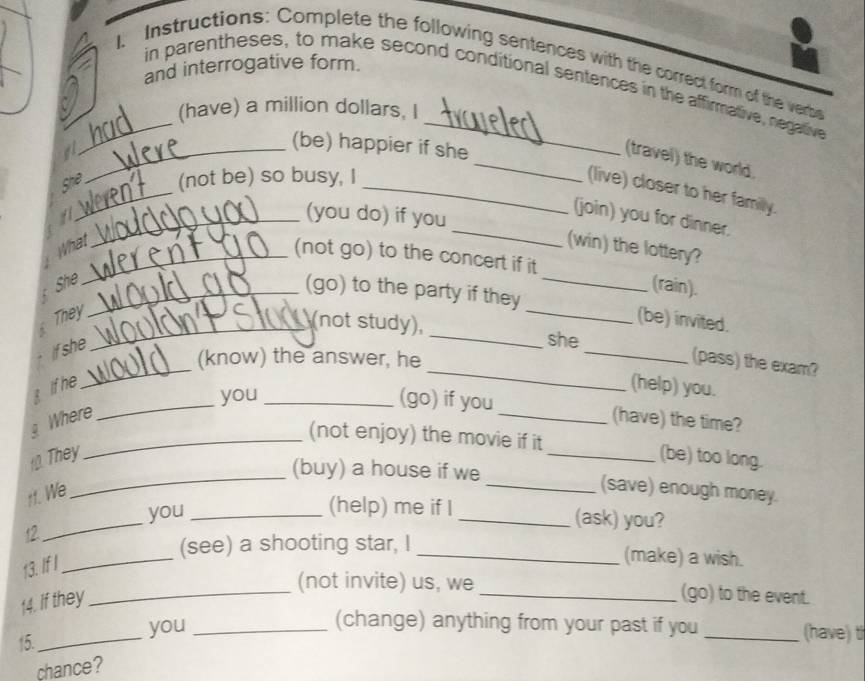 I. Instructions: Complete the following sentences with the correct form of the verbs
in parentheses, to make second conditional sentences in the affirmative, negative
and interrogative form.
If I had (have) a million dollars, I traveled (travel) the world.
She Were (be) happier if she ______ (live) closer to her family.
3. If I Weren't (not be) so busy, I ______ (join) you for dinner.
4. What Would do you (you do) if you ______ (win) the lottery?
5. She Weren't go (not go) to the concert if it ______ (rain).
6. They Would go (go) to the party if they ______ (be) invited.
7. If she Wouldn't Study (not study), ______ she ______ (pass) the exam?
8. If he Would (know) the answer, he ______ (help) you.
9. Where ______ you ______ (go) if you ______ (have) the time?
10. They ______ (not enjoy) the movie if it ______ (be) too long.
11. We ______ (buy) a house if we ______ (save) enough money.
12. ______ you ______ (help) me if I ______ (ask) you?
13. If I ______ (see) a shooting star, I ______ (make) a wish.
14. If they ______ (not invite) us, we ______ (go) to the event.
15. ______ you ______ (change) anything from your past if you ______ (have) t
chance?